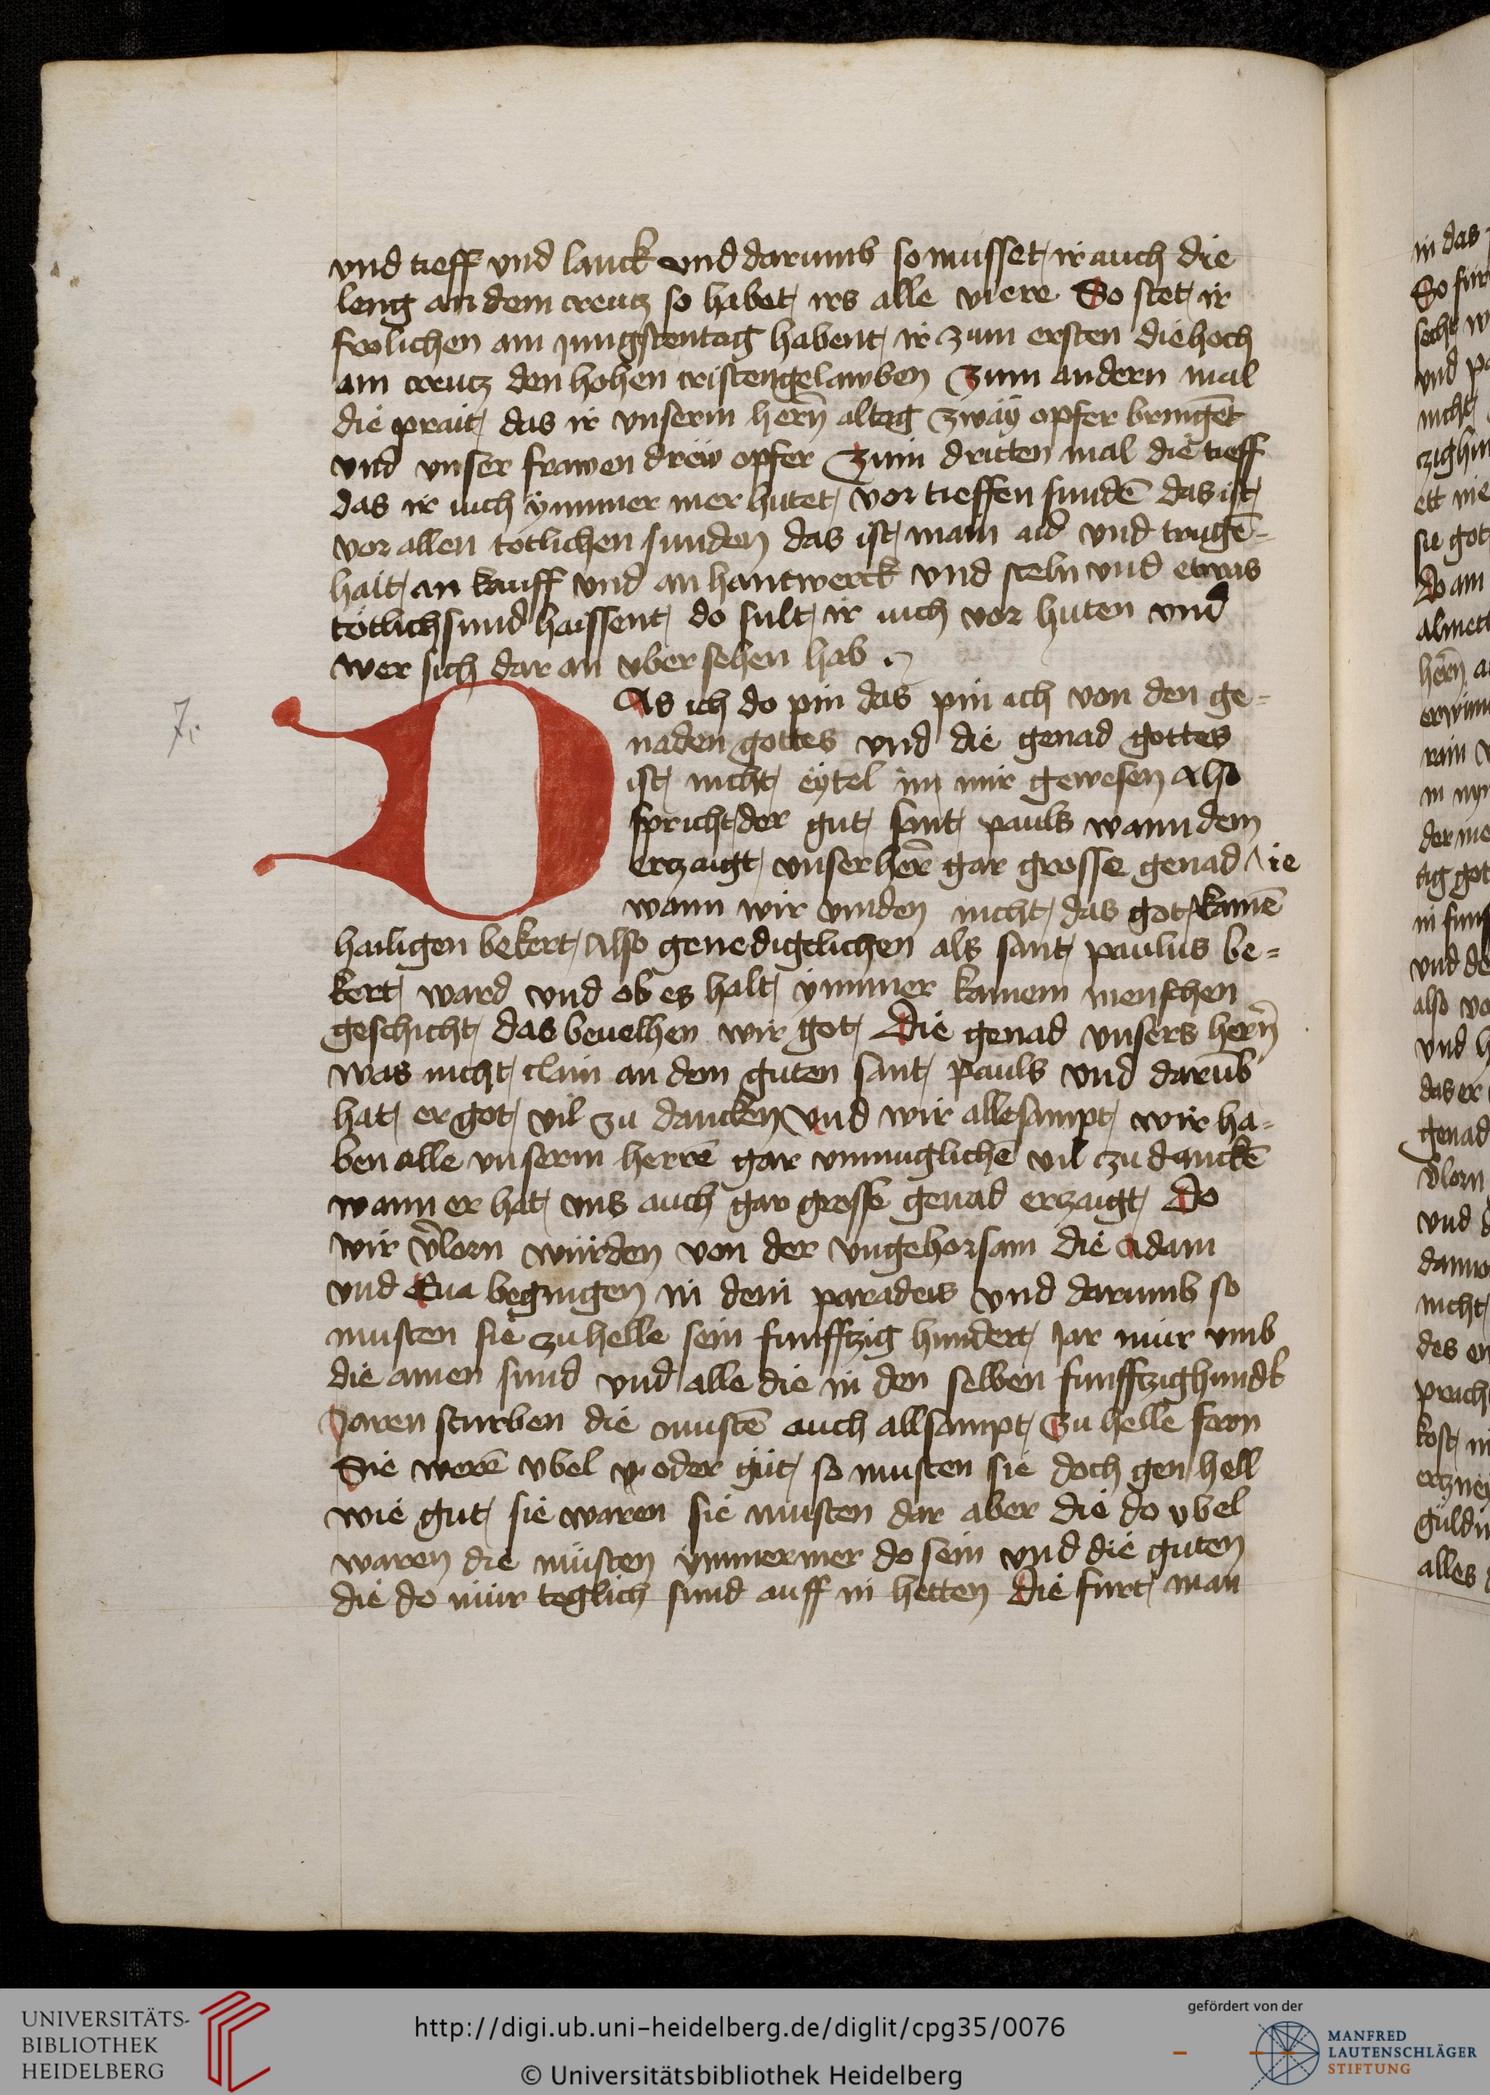 vnd tieff vnd lanck vnd darumb so musset ir auch die
leng an dem creutz so habet irs alle viere So stet ir
frolichen am jungstentag habent ir zum ersten die hoch
am creutz den hohen cristengelawben Zum andern mal
die prait das ir vnserm hern̄ altag zwaÿ opfer bringēt
vnd vnser frawen drew opfer Zum dritten mal die tieff
das ir iuch ÿmmer mer hutet vor tieffen sundē das ist
vor allen totlichen sunden das ist main aid vnd trugē-
hait an kauff vnd an hantwerck vnd steln vnd etwas
totlich sund haissent do sult ir iuch vor huten vnd
wer sich dar an vbersehen hab
7.
DAs ich do pin das pin ich von den ge-
naden gottes vnd die genad gottes
ist nicht eÿtel in mir gewesen Also
spricht der gut sant pauls wann dem
ertzaigt vnser her̄ gar grosse genad ie
wann wir vinden nicht das got kainē
hailigen bekert Also genediglichen als sant paulus be-
kert ward vnd ob es halt ÿmmer kainem menschen
geschicht das beuelhen wir got Die genad vnsers hern̄
was nicht clain an dem guten sant pauls vnd darūb
hat er got vil zu dancken Vnd wir allesampt wir ha-
ben alle vnserm herrē gar vnmuglichē vil zu danckē
wann er hat vns auch gar grosse genad ertzaigt Do
wir v̄lorn wurden von der vngehorsam die Adam
vnd Eua begingen in dem paradeis vnd darumb so
musten sie zu helle sein funfftzig hundert Jar nuir vmb
die ainen sund vnd alle die in den selben funfftzighundt
Jaren sturben die mustē auch allsampt Zu helle farn
Sie werē vbel oder gut so musten sie doch gen hell
wie gut sie waren sie musten dar aber die do vbel
waren die musten ÿmmermer do sein vnd die guten
die do nuir teglich sund auff in hetten Die furt man
UNIVERSITÄTS-
BIBLIOTHEK
HEIDELBERG
http://digi.ub.uni-heidelberg.de/diglit/cpg35/0076
© Universitätsbibliothek Heidelberg
gefördert von der
MANFRED
LAUTENSCHLÄGER
STIFTUNG